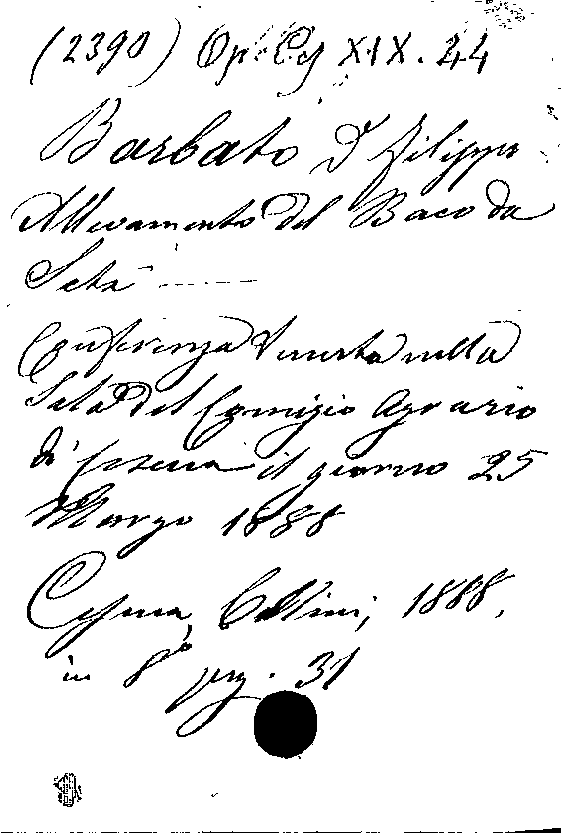 (2390) Op. Ces XIX. 44
Barbato D. Filippo
Allevamento del Baco da
Seta ------
Conferenza tenuta nella
Sala del Comizio Agrario
di Cesena il giorno 25
Marzo 1888
Cesena, Collini, 1888,
in 8° pag. 31